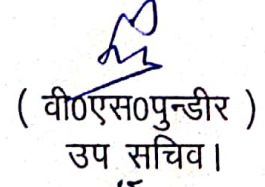 ( वी0एस0पुन्डीर )
उप सचिव।